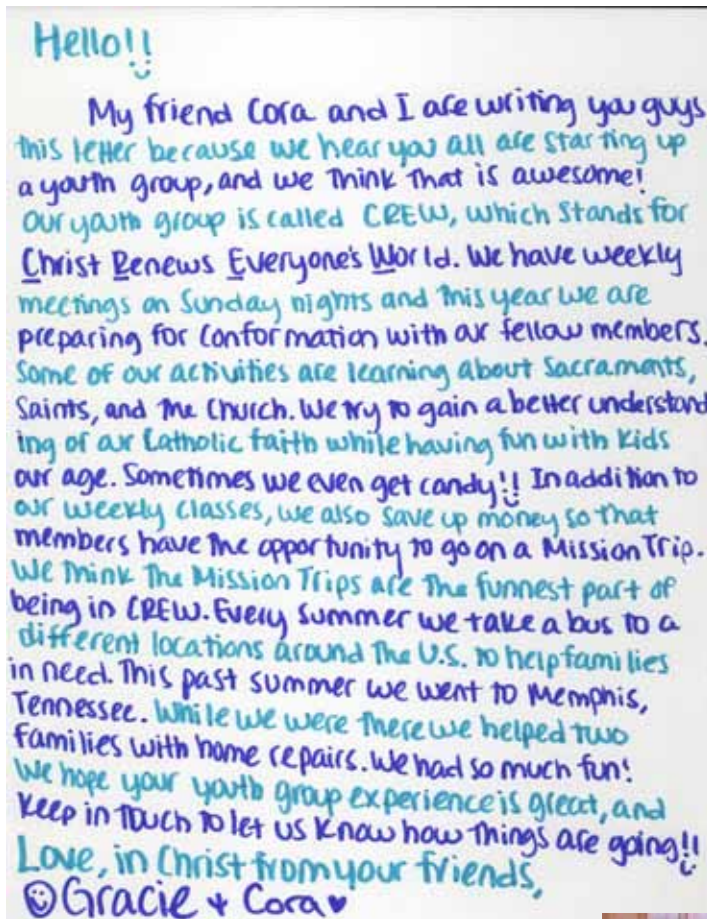 Hello!!
My friend Cora and I are writing you guys
this letter because we hear you all are starting up
a youth group, and we think that is awesome!
Our youth group is called CREW, which stands for
Christ Renews Everyone's World. We have weekly
meetings on Sunday nights and this year we are
preparing for Conformation with our fellow members.
Some of our activities are learning about Sacraments,
Saints, and the Church. We try to gain a better understand
ing of our Catholic faith while having fun with kids
our age. Sometimes we even get candy!! In addition to
our weekly classes, we also save up money so that
members have the opportunity to go on a Mission Trip.
We think the Mission Trips are the funnest part of
being in CREW. Every summer we take a bus to a
different locations around the U.S. to help families
in need. This past summer we went to Memphis,
Tennessee. While we were there we helped two
families with home repairs. We had so much fun!
We hope your youth group experience is great, and
keep in touch to let us know how things are going!!
Love, in Christ from your friends,
☺Gracie + Cora♥